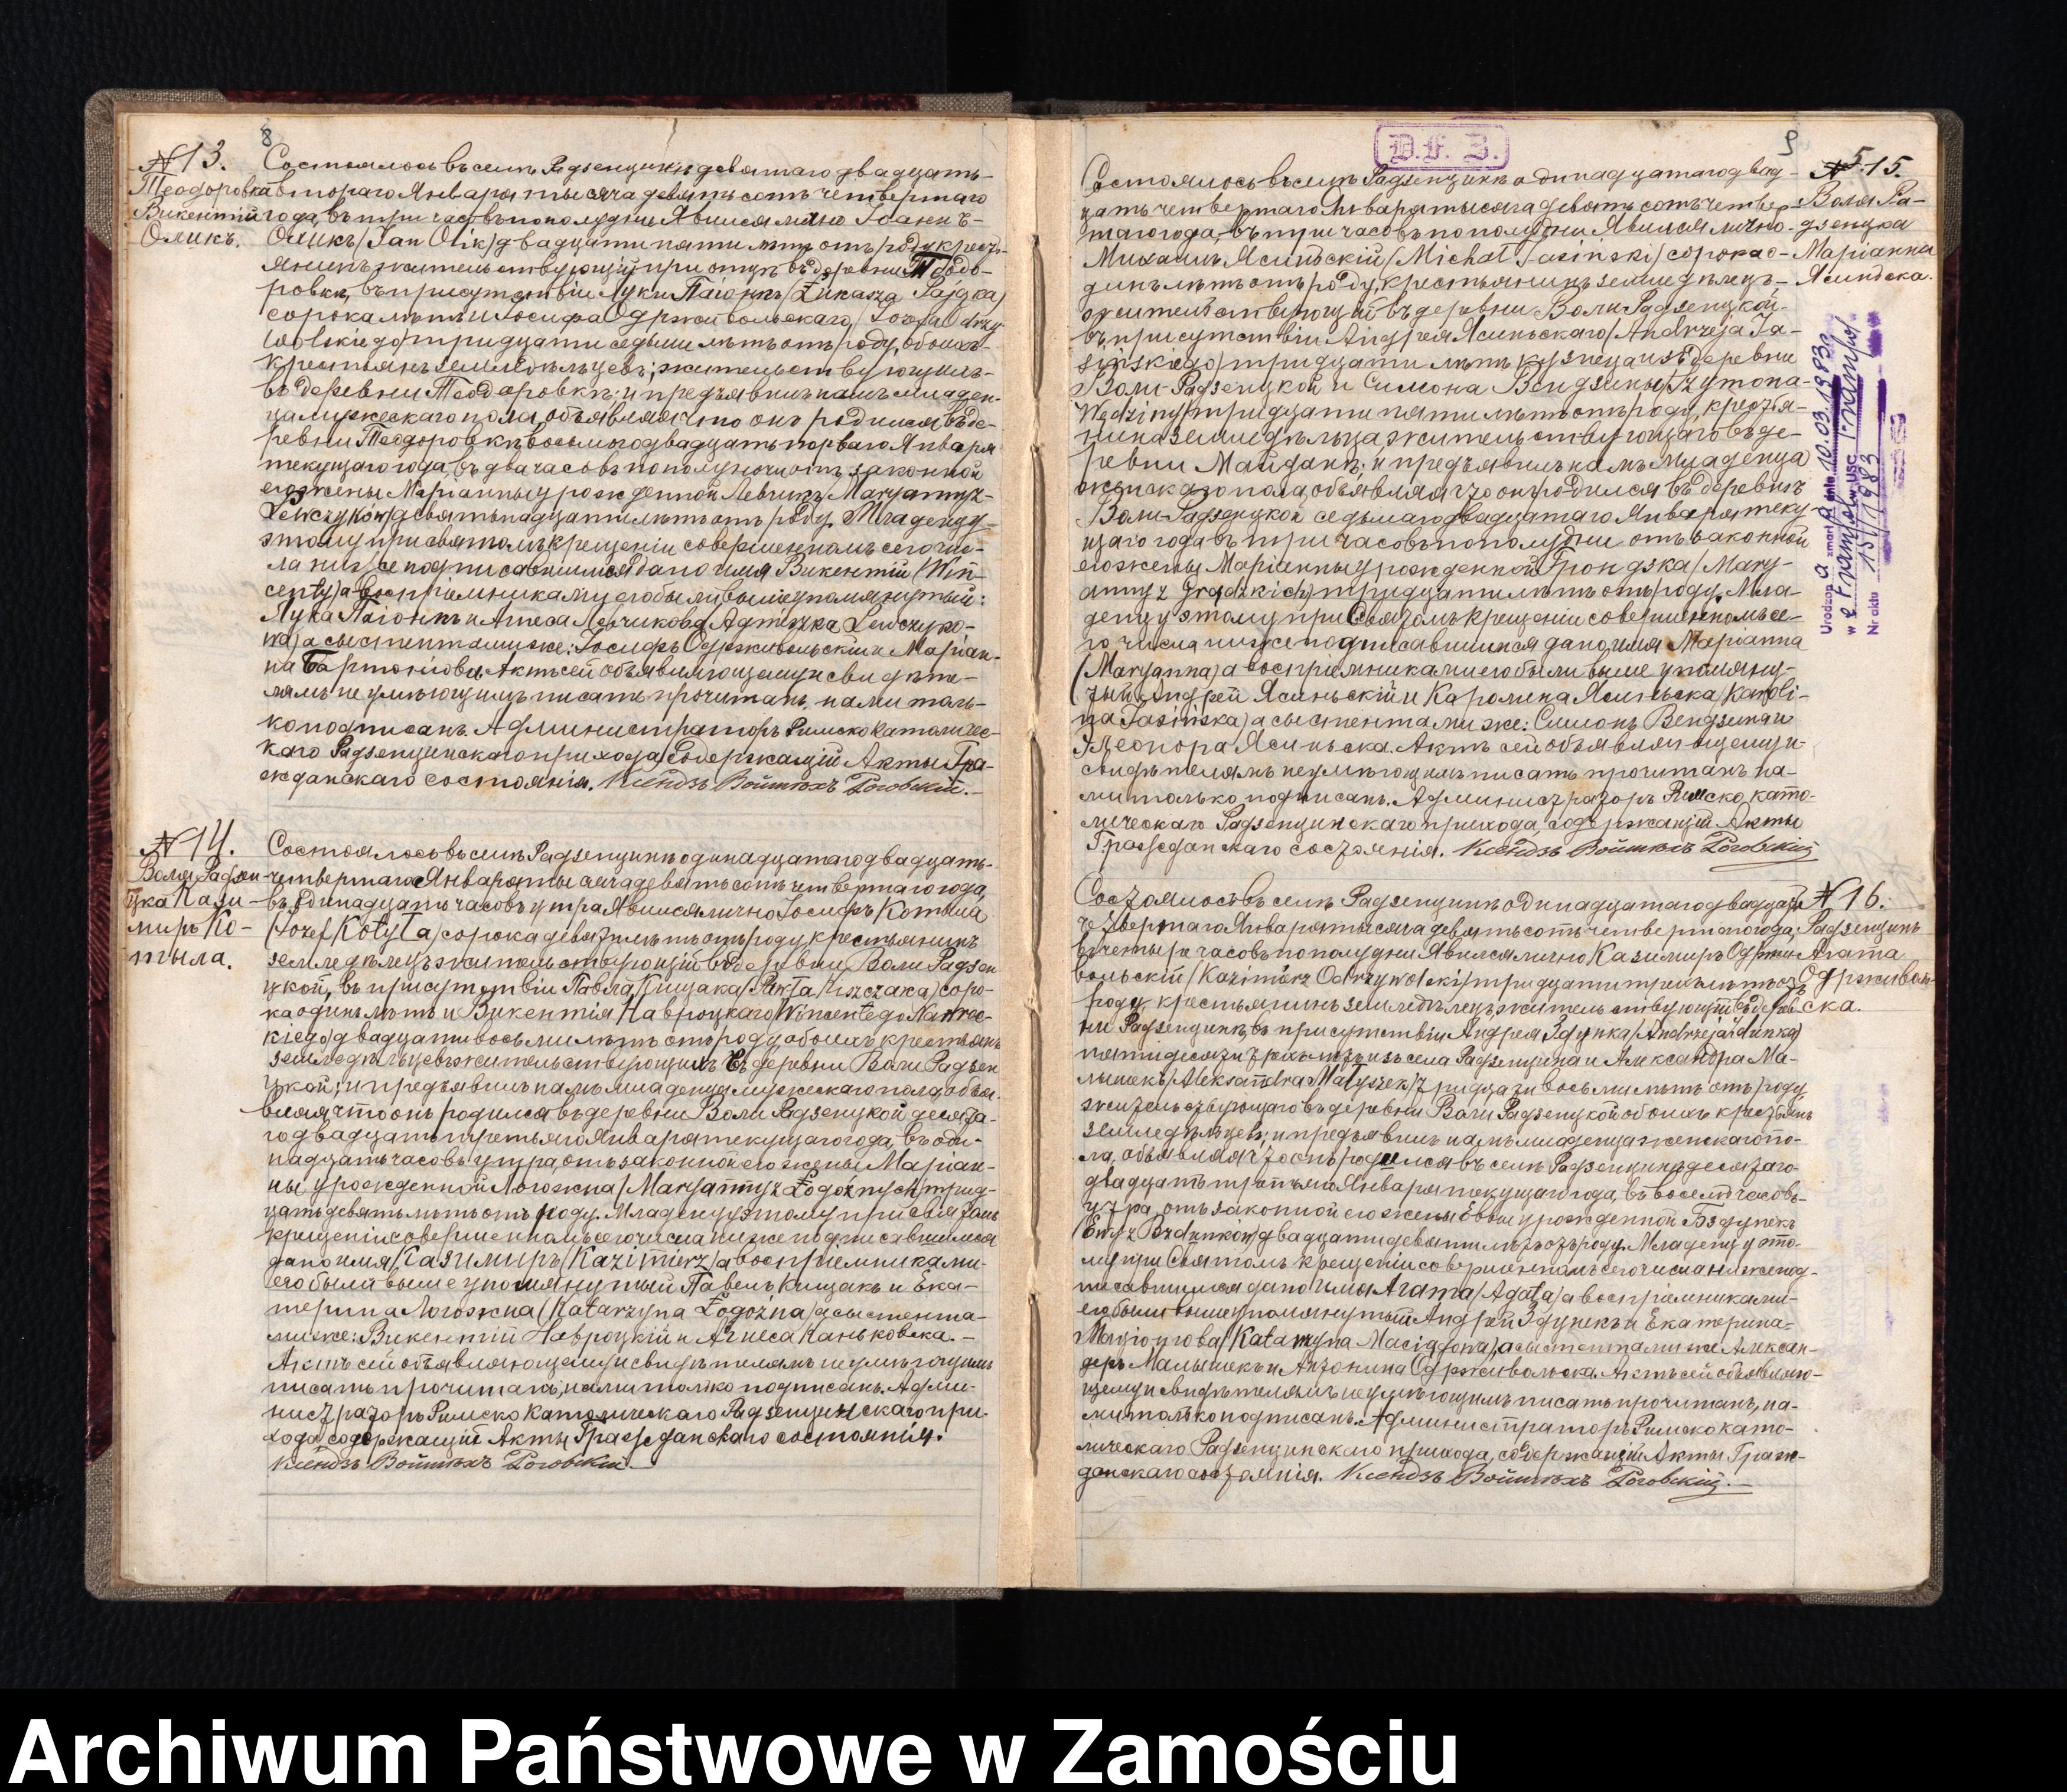 8
№ 13.
Теодоровка
Викентій
Оликъ.
Состоялось въ селѣ Радзенцинѣ девятаго двадцать-
втораго Января тысяча девятьсотъ четвертаго
года, въ три часовъ пополудни Явился лично Іоаннъ-
Оликъ /Jan Olik/ двадцати пяти лѣтъ отъ роду кресть-
янинъ жительствующій при отцѣ въ деревни Теодо-
ровкѣ, въ присутствіи Луки Паіонкъ /Łukasza Pająka/
сорока лѣтъ и Іосифа Одрживольскаго /Józefa Odrzy-
wolskiego/ тридцати седьми лѣтъ отъ роду, обоихъ-
крестьянъ земледѣльцевъ; жительствующихъ-
въ деревни Теодоровкѣ; и предъявилъ намъ младен-
ца мужескаго пола, объявляя что онъ родился въ де-
ревни Теодоровкѣ восьмого двадцать перваго Января
текущаго года, въ два часовъ пополуночи отъ законной
его жены Маріанны урожденной Левчикъ /Maryanny z-
Lewczyków/ девятьнадцати лѣтъ отъ роду. Младенцу-
этому при святомъ крещеніи совершенномъ сего чис-
ла ниже подписавшимся дано имя Викентій /Win-
centy/ а воспріемниками его были, выше упомянутый:
Лука Паіонкъ и Агнеса Левчикова /Agnieszka Lewczyko-
wa/ а сыстентами же: Іосифъ Одрживольскій и Маріан-
на Бартошова. Актъ сей объявляющему и свидѣте-
лямъ неумѣющимъ писать прочитанъ, нами толь-
ко подписанъ. Администраторъ Римско Католичес-
каго Радзенцинскаго прихода, Содержащій Акты Гра-
жданскаго состоянія. Ксендзъ Войтѣхъ Роговскій.
№ 14.
Воля Радзен-
цка Кази-
миръ Ко-
тыла.
Состоялось въ селѣ Радзенцинѣ одинадцатаго двадцать-
четвертаго Января тысяча девятьсотъ четвертаго года,
въ одинадцать часовъ утра Явился лично Іосифъ Котыла
/Józef Kotyła/ сорока девяти лѣтъ отъ роду, крестьянинъ
земледѣлецъ жительствующій въ деревни Воли Радзен
цкой, въ присутствіи Павла Кищака /Pawła Kiszczaka/ соро-
ка одинъ лѣтъ и Викентія Навроцкаго /Wincentego Nawroc-
kiego/ двадцати восьми лѣтъ отъ роду обоихъ крестьянъ
земледѣльцевъ жительствующихъ въ деревни Воли Радзен
цкой; и предъявилъ намъ младенца мужескаго пола, объя-
вляя что онъ родился въ деревни Воли Радзенцкой десята-
го двадцать третьяго Января текущаго года, въ оди-
надцать часовъ утра, отъ законной его жены Маріан-
ны урожденной Логожна /Maryanny z Łogożnych/ трид-
цать девять лѣтъ отъ роду. Младенцу этому при святомъ
крещеніи совершенномъ сего числа ниже подписавшимся
дано имя Казимиръ /Kazimierz/ а воспріемниками-
его были выше упомянутый Павелъ Кищакъ и Ека-
терина Логожна /Katarzyna Łogożna/ а сыстента-
ми же: Викентій Навроцкій и Агнеса Каньковска.-
Актъ сей объявляющему и свидѣтелямъ неумѣющимъ
писать прочитанъ, нами только подписанъ. Адми-
нистраторъ Римско Католическаго Радзенцинскаго при-
хода, содержащій Акты Гражданскаго состоянія.
Ксендзъ Войтѣхъ Роговскій
D.F.Z.
9
№ 15.
Воля Ра-
дзенцка
Маріанна
Ясинска.
Состоялось въ селѣ Радзенцинѣ одинадцатаго двад-
цать четвертаго Января тысяча девятьсотъ четвер-
таго года, въ три часовъ пополудни Явился лично-
Михаилъ Ясиньскій /Michał Jasiński/ сорока о-
динъ лѣтъ отъ роду, крестьянинъ земледѣлецъ-
жительствующій въ деревни Воли Радзенцкой-
въ присутствіи Андрея Ясиньскаго /Andrzeja Ja-
sińskiego/ тридцати лѣтъ кузнеца изъ деревни
Воли-Радзенцкой и Симона Вендзины /Szymona-
Wędziny/ тридцати пяти лѣтъ отъ роду, крестья-
нина земледѣльца жительствующаго въ де-
ревни Майданъ; и предъявилъ намъ младенца
женскаго пола, объявляя что онъ родился въ деревнѣ
Воли-Радзенцкой седьмаго двадцатаго Января теку
щаго года въ три часовъ пополудни отъ законной
его жены Маріанны урожденной Грондзка /Mary-
anny z Grądzkich/ тридцати лѣтъ отъ роду. Мла-
денцу этому при Святомъ крещеніи совершенномъ се-
го числа ниже подписавшимся дано имя Маріанна
/Maryanna/ а воспріемниками его были выше упомяну-
тый Андрей Ясиньскій и Каролина Ясиньска /Karoli-
na Jasińska/ а сыстентами же: Симонъ Вендзина и
Элеонора Ясиньска. Актъ сей объявляющему и-
свидѣтелямъ неумѣющимъ писать прочитанъ на-
ми только подписанъ. Администраторъ Римско като-
лическаго Радзенцинскаго прихода, содержащій Акты
Гражданскаго состоянія. Ксендзъ Войтѣхъ Роговскій
Urodzona zmarła dnia 10.03.1983 r.
w Frampolu USC Frampol
Nr aktu 15/1983
№ 16.
Радзенцинъ
Агата
Одрживоль-
ска.
Состоялось въ селѣ Радзенцинѣ одинадцатаго двадцать
четвертаго Января тысяча девятьсотъ четвертого года,
въ четыре часовъ пополудни Явился лично Казимиръ Одржи-
вольскій /Kazimierz Odrzywolski/ тридцати трехъ лѣтъ отъ
роду крестьянинъ земледѣлецъ жительствующій въ дерев-
ни Радзенцинѣ, въ присутствіи Андрея Здунка /Andrzeja Zdunka/
пятидесяти трехъ лѣтъ изъ села Радзенцина и Александра Ма-
лышекъ /Aleksandra Małyszek/ тридцати восьми лѣтъ отъ роду
жительствующаго въ деревни Воли Радзенцкой обоихъ крестьянъ
земледѣльцевъ; и предъявилъ намъ младенца женскаго по-
ла, объявляя что онъ родился въ селѣ Радзенцинѣ десятаго
двадцать третьяго Января текущаго года, въ восемь часовъ-
утра, отъ законной его жены Евы урожденной Бздунекъ
/Ewy z Bzdunków/ двадцати девяти лѣтъ отъ роду. Младенцу это-
му при Святомъ крещеніи совершенномъ сего числа ниже под-
писавшимся дано имя Агата /Agata/ а воспріемниками-
его были выше упомянутый Андрей Здунекъ и Екатерина-
/Katarzyna Maciągowa/, а сыстентами же Алексан-
деръ Малышекъ и Антонина Одрживольска. Актъ сей объявляю-
щему и свидѣтелямъ неумѣющимъ писать прочитанъ, на-
ми только подписанъ. Администраторъ Римско като-
лическаго Радзенцинскаго прихода, содержащій Акты Граж-
данскаго состоянія. Ксендзъ Войтѣхъ Роговскій.
Archiwum Państwowe w Zamościu